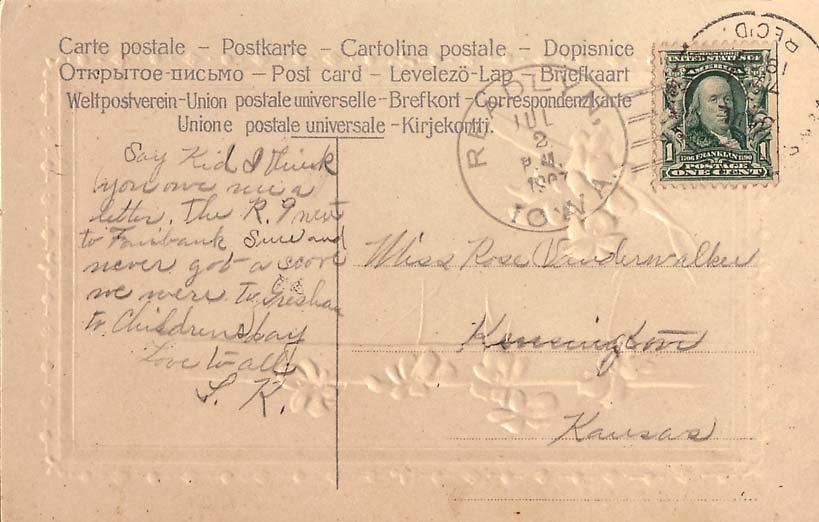 Carte postale – Postkarte – Cartolina postale – Dopisnice
Открытое-письмо – Post card – Levelezö-Lap – Briefkaart
Weltpostverein-Union postale universelle-Brefkort-Correspondenzkarte
Unione postale universale-Kirjekortti.
Say Kid I think
you owe me a
letter. The R. 9 went
to Fairbank Sun and
never got a score
we were to
to Childrensday
Love to all
L. K.
JUL
2
P.M.
1907
IOWA.
REC'D.
UNITED STATES OF
AMERICA
1 1706 FRANKLIN 1790 1
POSTAGE
ONE CENT
Miss Rose Vanderwalker
Kensington
Kansas